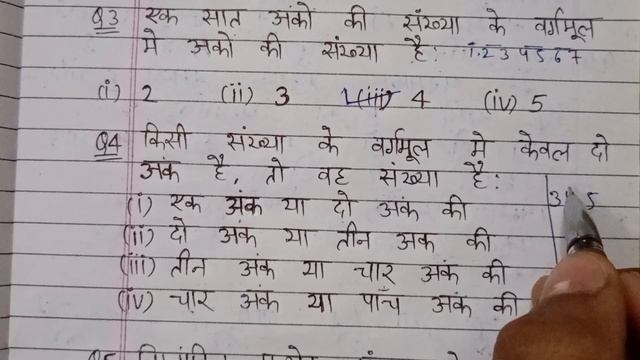 Q3 एक सात अंकों की संख्या के वर्गमूल
मे अकों की संख्या है: 1.2 3 4 5 6 7
(i) 2 (ii) 3 (iii) 4 (iv) 5
Q4 किसी संख्या के वर्गमूल मे केवल दो
अंक है, तो वह संख्या है:
(i) एक अंक या दो अंक की
(ii) दो अंक या तीन अक की
(iii) तीन अंक या चार अंक की
(iv) चार अंक या पाँच अंक की